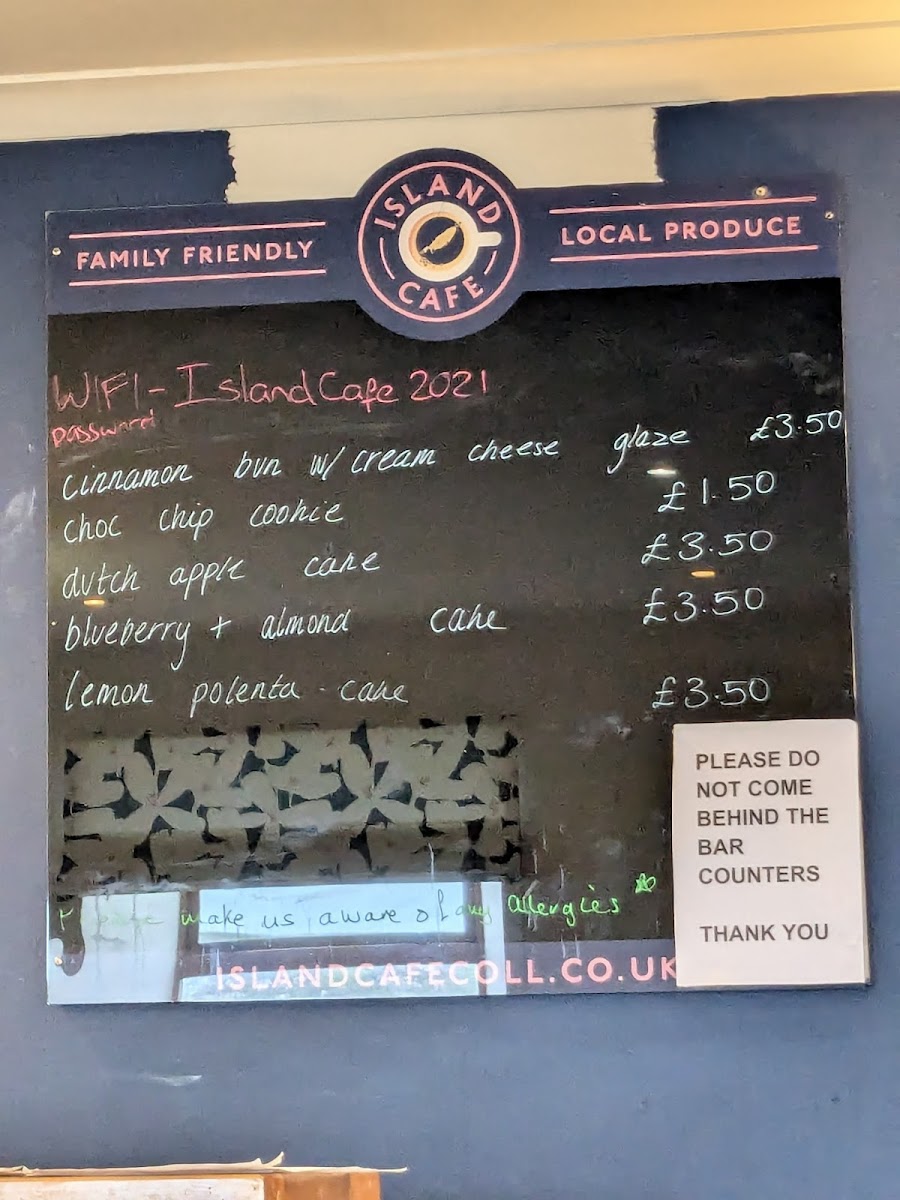 FAMILY FRIENDLY
ISLAND
CAFE
LOCAL PRODUCE
WIFI - IslandCafe 2021
password
cinnamon bun w/ cream cheese glaze £3.50
choc chip cookie £1.50
dutch apple cake £3.50
blueberry + almond cake £3.50
lemon polenta cake £3.50
make us aware of any allergies
ISLANDCAFECOLL.CO.UK
PLEASE DO
NOT COME
BEHIND THE
BAR
COUNTERS
THANK YOU